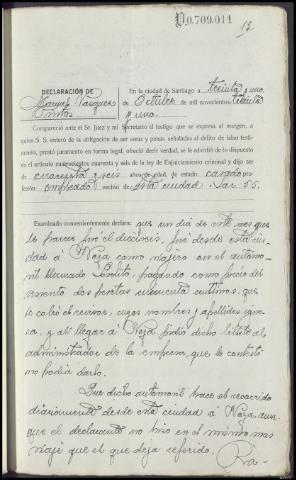 P0.709.011
12
DECLARACIÓN DE
Manuel Vasques
Pintos
En la ciudad de Santiago a treinta y uno
de Octubre de mil novecientos treinta
y uno.
Compareció ante el Sr. Juez y mi Secretario el testigo que se expresa al margen, a
quien S. S. enteró de la obligación de ser veraz y penas señaladas al delito de falso testi-
monio, prestó juramento en forma legal, ofreció decir verdad, se le advirtió de lo dispuesto
en el artículo cuatrocientos cuarenta y seis de la ley de Enjuiciamiento criminal y dijo ser
de cuarenta y seis años de edad, de estado casado pro-
fesión empleado vecino de esta ciudad
Examinado convenientemente declara: que un dia de este mes que
le parece fué el dieciseis, fué desde esta ciu-
dad á Noya como viajero en el automo-
vil llamado Lolita, pagando como precio del
asiento dos pesetas cincuenta centimos, que
le cobró el revisor, cuyos nombres y apellidos igno-
ra, y al llegar á Noya pidió dicho billete al
administrador de la empresa, que le contestó
no podia darlo.
Que dicho automovil hace el recorrido
diariamente desde esta ciudad á Noya aun-
que el declarante no hizo en el mismo mas
viaje que el que deja referido.